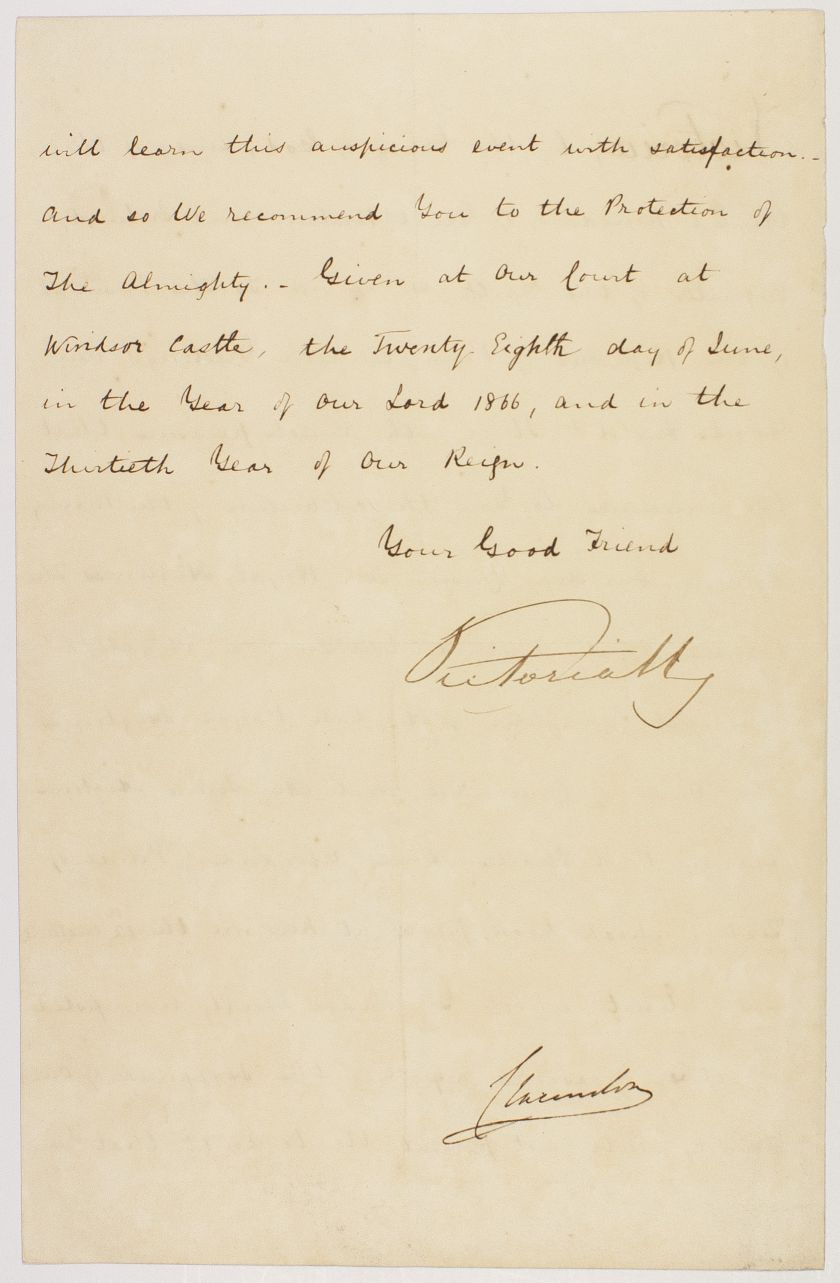 will learn this auspicious event with satisfaction. -
And so We recommend You to the Protection of
The Almighty. - Given at Our Court at
Windsor Castle, the Twenty Eighth day of June,
in the Year of Our Lord 1866, and in the
Thirtieth Year of Our Reign.
Your Good Friend
Victoria R
Clarendon